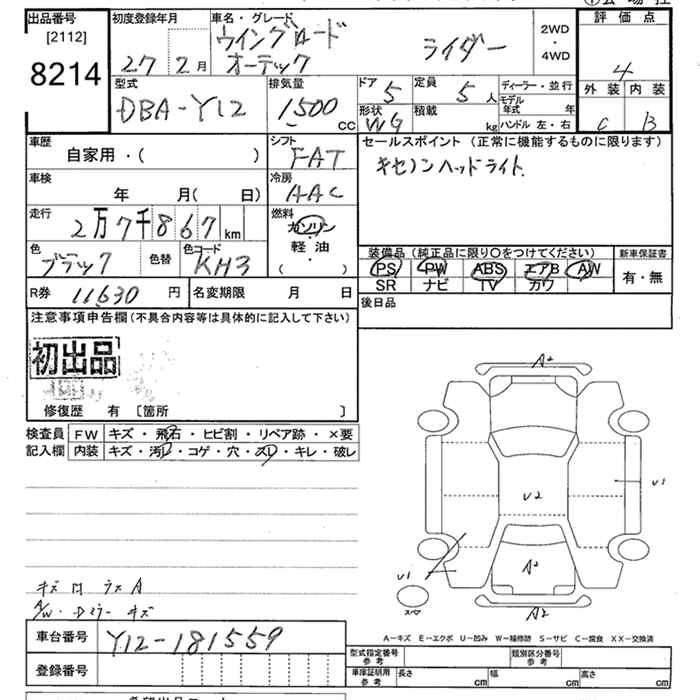 出品番号
[2112]
8214
初度登録年月
27 2月
車名・グレード
ウイングロード
オーテック
ライダー
2WD
・
4WD
評価点
4
外装 内装
C B
型式
DBA-Y12
排気量
1500 CC
ドア 5
定員 5人
形状 WG
積載 kg
ディーラー・並行
モデル年式 年
ハンドル 左・右
車歴
自家用・( )
シフト
FAT
車検
年 月( 日)
冷房
AAC
走行
2万7千867km
燃料
ガソリン
軽・油
・
( )
色
ブラック
色替
色コード
KH3
R券 11630円
名変期限 月 日
セールスポイント (正常に機能するものに限ります)
キセノンヘッドライト
装備品 (純正品に限り〇をつけてください)
PS PW ABS エアB AW
SR ナビ TV カワ
新車保証書
有・無
後日品
注意事項申告欄(不具合内容等は具体的に記入して下さい)
初出品
修復歴 有 〔箇所 〕
検査員 FW キズ・飛石・ヒビ割・リペア跡・×要
記入欄 内装 キズ・汚レ・コゲ・穴・スレ・キレ・破レ
A2
U2
U1
A2
U1
スペア
A2
A/W・Dミラーキズ
車台番号 Y12-181559
登録番号
A－キズ E－エクボ U－凹み W－補修跡 S－サビ C－腐食 XX－交換済
型式指定番号 参考
類別区分番号 参考
車庫証明用 参考 長さ cm 幅 cm 高さ cm